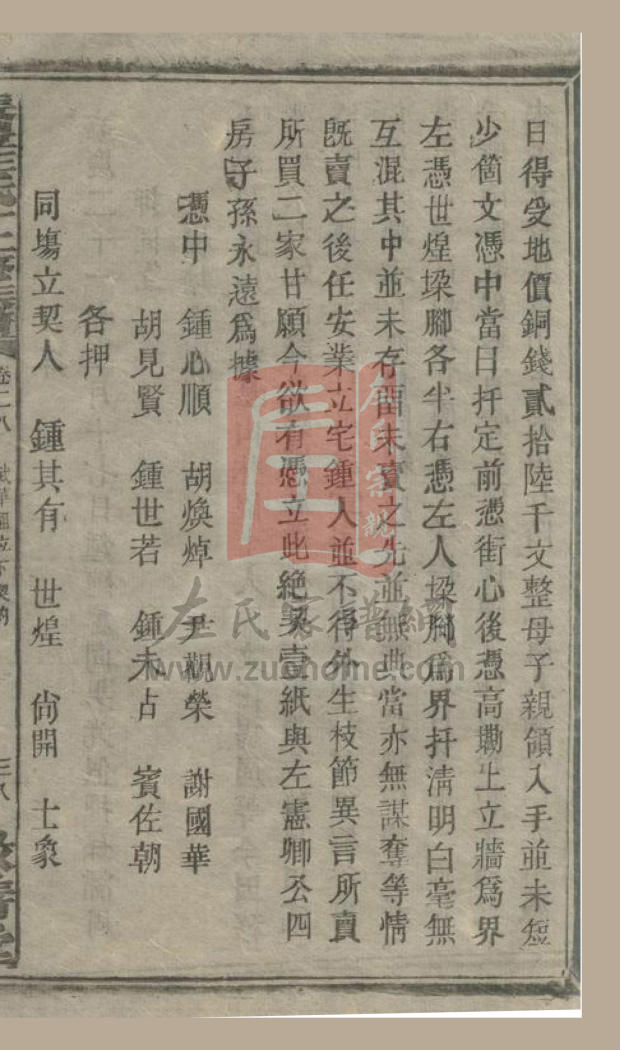 日得受地價銅錢貳拾陸千文整母子親領入手並未短
少箇文憑中當日扞定前憑街心後憑高磡上立牆爲界
左憑世煌垜腳各半右憑左人垜腳爲界扞清明白毫無
互混其中並未存畱未賣之先並無典當亦無謀奪等情
旣賣之後任安業立宅鍾人並不得外生枝節異言所賣
所買二家甘願今欲有憑立此絕契壹紙與左憲卿公四
房子孫永遠爲據
憑中　鍾心順　胡煥焯　尹觀榮　謝國華
胡見賢　鍾世若　鍾未占　賓佐朝
各押
同塲立契人　鍾其有　世煌　尙開　士象
卷二八
三八
左氏家譜網
www.zuohome.com